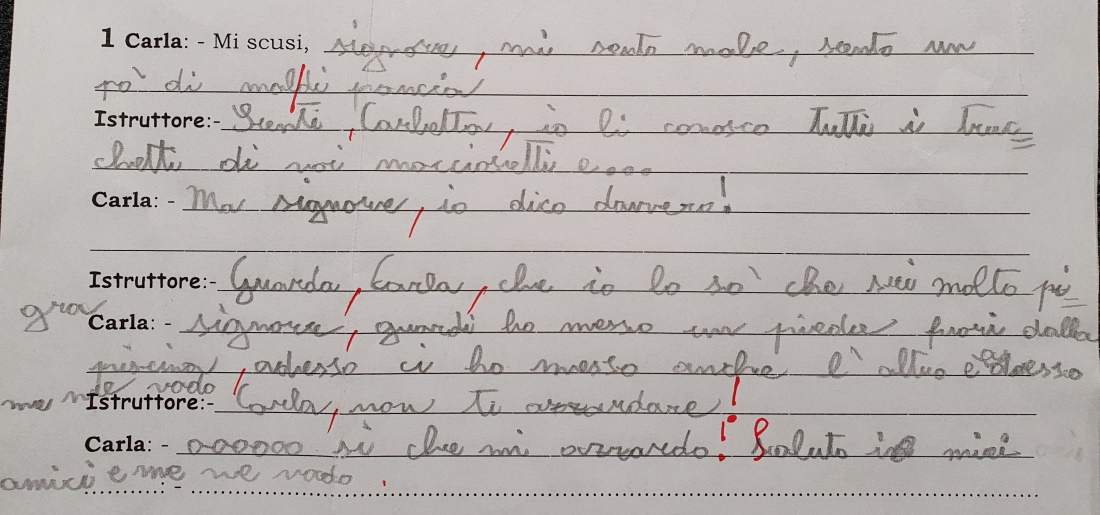 1 Carla: - Mi scusi, signore, mi sento male, sento un
pò di mal di pancia
Istruttore:- Senti, Carletta, io li conosco tutti i truc=
chetti di voi mocciosetti e...
Carla: - Ma signore, io dico davvero!
Istruttore:- Guarda, Carla, che io lo so' che sei molto pi=
gra
Carla: - signore, guardi ho messo un piede fuori dalla
piscina, adesso ci ho messo anche l'altro e adesso
me ne vado
Istruttore:- Carla, non ti azzardare!
Carla: - oooooo sì che mi azzardo! Saluto i miei
amici e me ne vado.